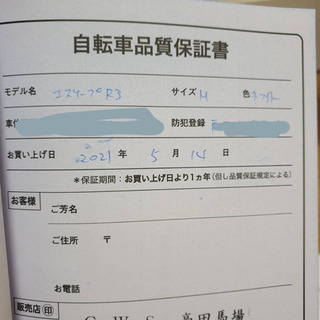 自転車品質保証書
モデル名 エスケープR3 サイズ M 色 ホワイト
車体 防犯登録
お買い上げ日 2021 年 5 月 14 日
*保証期間:お買い上げ日より1ヵ年(但し品質保証規定による)
お客様
ご芳名
ご住所 〒
お電話
販売店 印
高田馬場